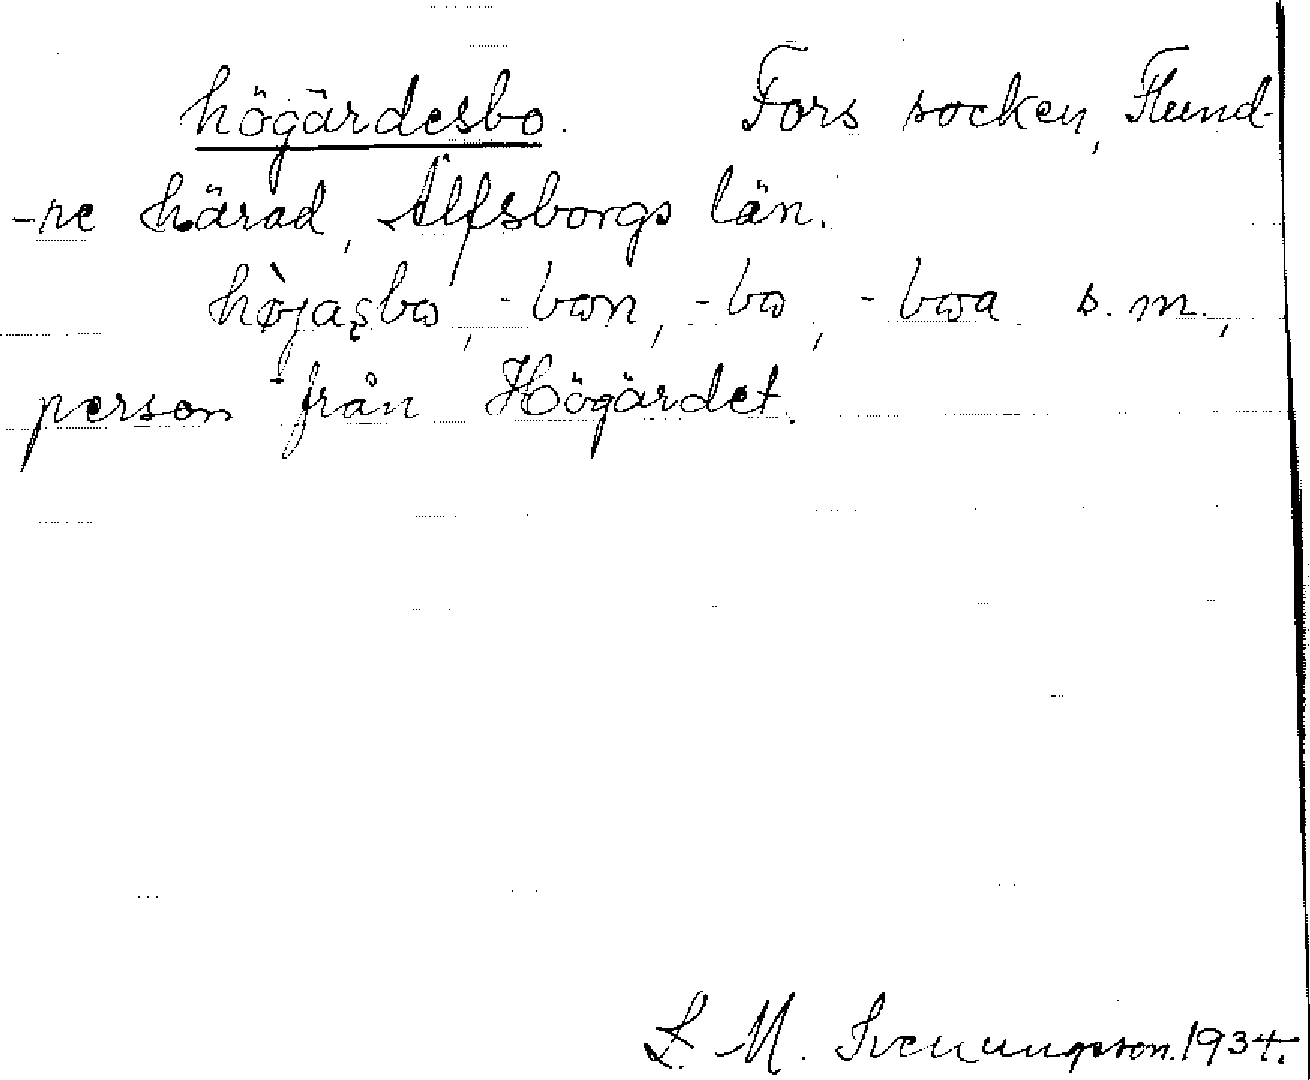 högärdesbo. Fors socken, Flund-
-re härad, Älfsborgs län.
hø̀jasbω, -bωn, -bω, -bωa s. m.,
person från Högärdet.
L. M. Svenungsson. 1934.